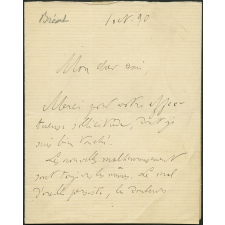 Bréal 1 oct. 90
Mon cher ami,
Merci pour votre affec-
tueuse sollicitude, dont je
suis bien touché.
Les nouvelles malheureusement
sont toujours les mêmes, le mal
d'oreille persiste, les douleurs